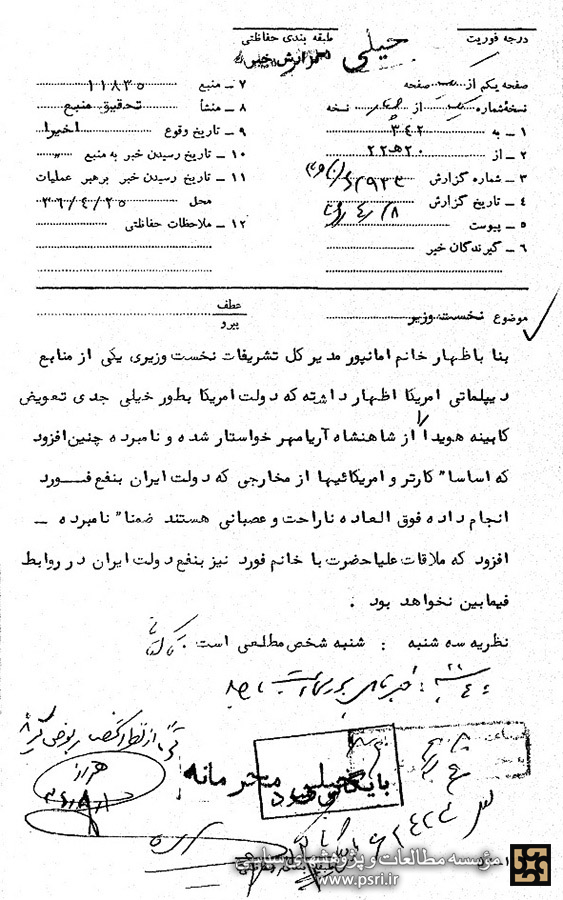 درجه فوریت
طبقه بندی حفاظتی
خیلی
گزارش خبر
صفحه یکم از صفحه
نسخهٔ شماره از نسخه
۱ ــ به ۳۴۲
۲ ــ از ۲۰هـ۲۲
۳ ــ شماره گزارش
۴ ــ تاریخ گزارش
۵ ــ پیوست
۶ ــ گیرندگان خبر
۷ ــ منبع ۱۱۸۳۵
۸ ــ منشأ تحقیق منبع
۹ ــ تاریخ وقوع اخیرا
۱۰ ــ تاریخ رسیدن خبر به منبع
۱۱ ــ تاریخ رسیدن خبر برهبر عملیات
محل ۳۶/۴/۲۵
۱۲ ــ ملاحظات حفاظتی
موضوع نخست وزیر
عطف
پیرو
بنا باظهار خانم امانپور مدیر کل تشریفات نخست وزیری یکی از منابع
دیپلماتی امریکا اظهار داشته که دولت امریکا بطور خیلی جدی تعویض
کابینه هویدا از شاهنشاه آریامهر خواستار شده و نامبرده چنین افزود
که اساسا" کارتر و امریکائیها از مخارجی که دولت ایران بنفع فـــورد
انجام داده فوق العاده ناراحت و عصبانی هستند ضمنا" نامبرده ــ
افزود که ملاقات علیاحضرت با خانم فورد نیز بنفع دولت ایران در روابط
فیمابین نخواهد بود .
نظریه سه شنبه : شنبه شخص مطلعی است .
بایگانی شود
خیلی محرمانه
موسسه مطالعات و پژوهشهای سیاسی
www.psri.ir